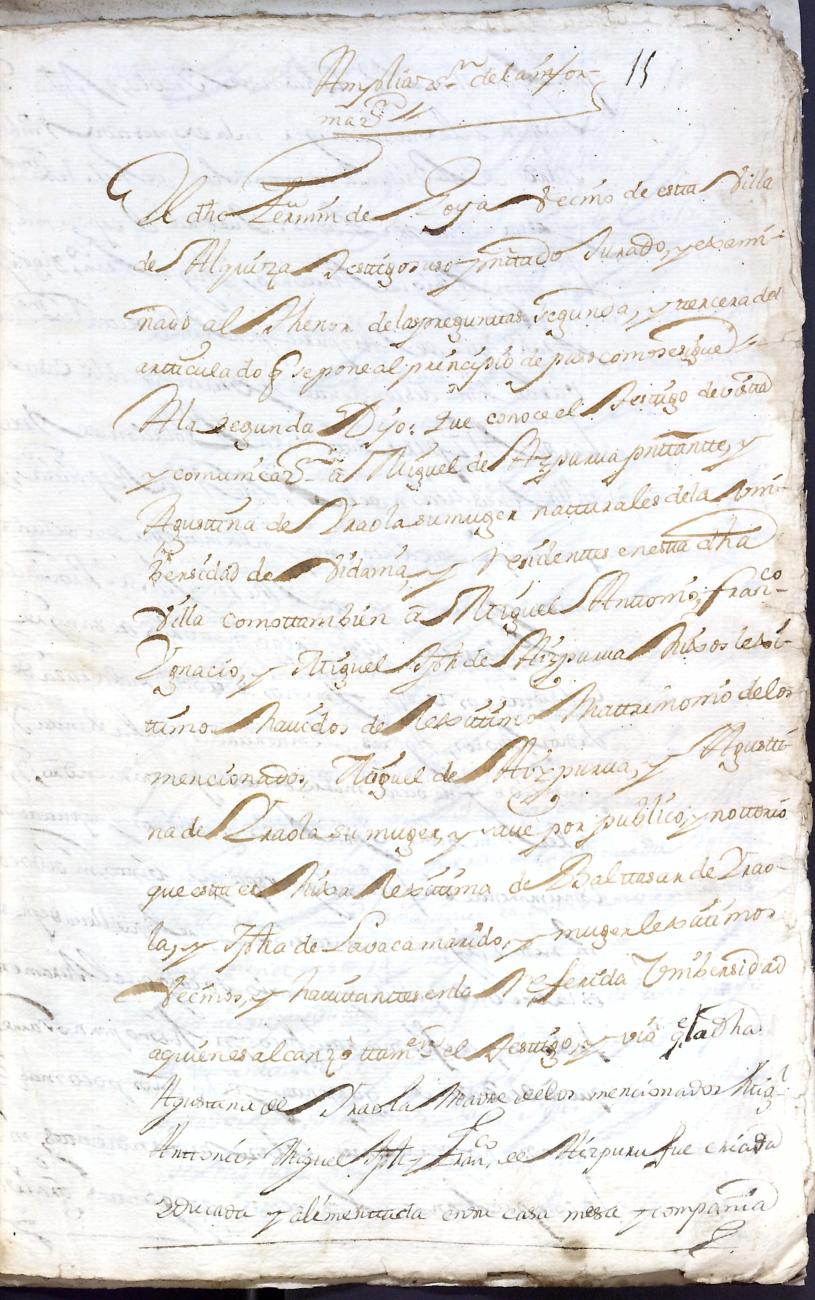 Ampliaz.on de la infor- 15
maz.on //
El dho Fermin de Loya Vecino de esta Villa
de Alquiza testigo suso pnttado Jurado, y exami-
nado al thenor de las preguntas segunda, y tercera del
artticulado q se pone al principio depuso como se sigue //
A la segunda Dijo: que conoce el testigo de vistta
y comunicaz.on a Miguel de Aizpurua pnttantte, y
Agusttina de Yraola su muger natturales de la Uni-
bersidad de Vidania, y Residenttes en estta dha
Villa como ttambien a Miguel Anttonio, Fran.co
Ygnacio, y Miguel Jph de Aizpurua hixos lexi-
ttimos havidos de Lexittimo Mattrimonio de los
mencionados, Miguel de Aizpurua, y Agustti-
na de Yraola su muger, y save por publico, y nottorio
que estta es hixa Lexittima de Balttasar de Yrao-
la, y Jpha de Lavaca marido, y muger lexitimos
Vecinos, y havittanttes en la Referida Unibersidad
a quienes alcanzó ttam.e el testigo, y vio q.e la dha
Agustina de Yraola Madre de los mencionados Mig.l
Anttonio, Miguel Jph y Fran.co de Aizpuru fue criada
educada y alimenttada en su casa mesa y compañia